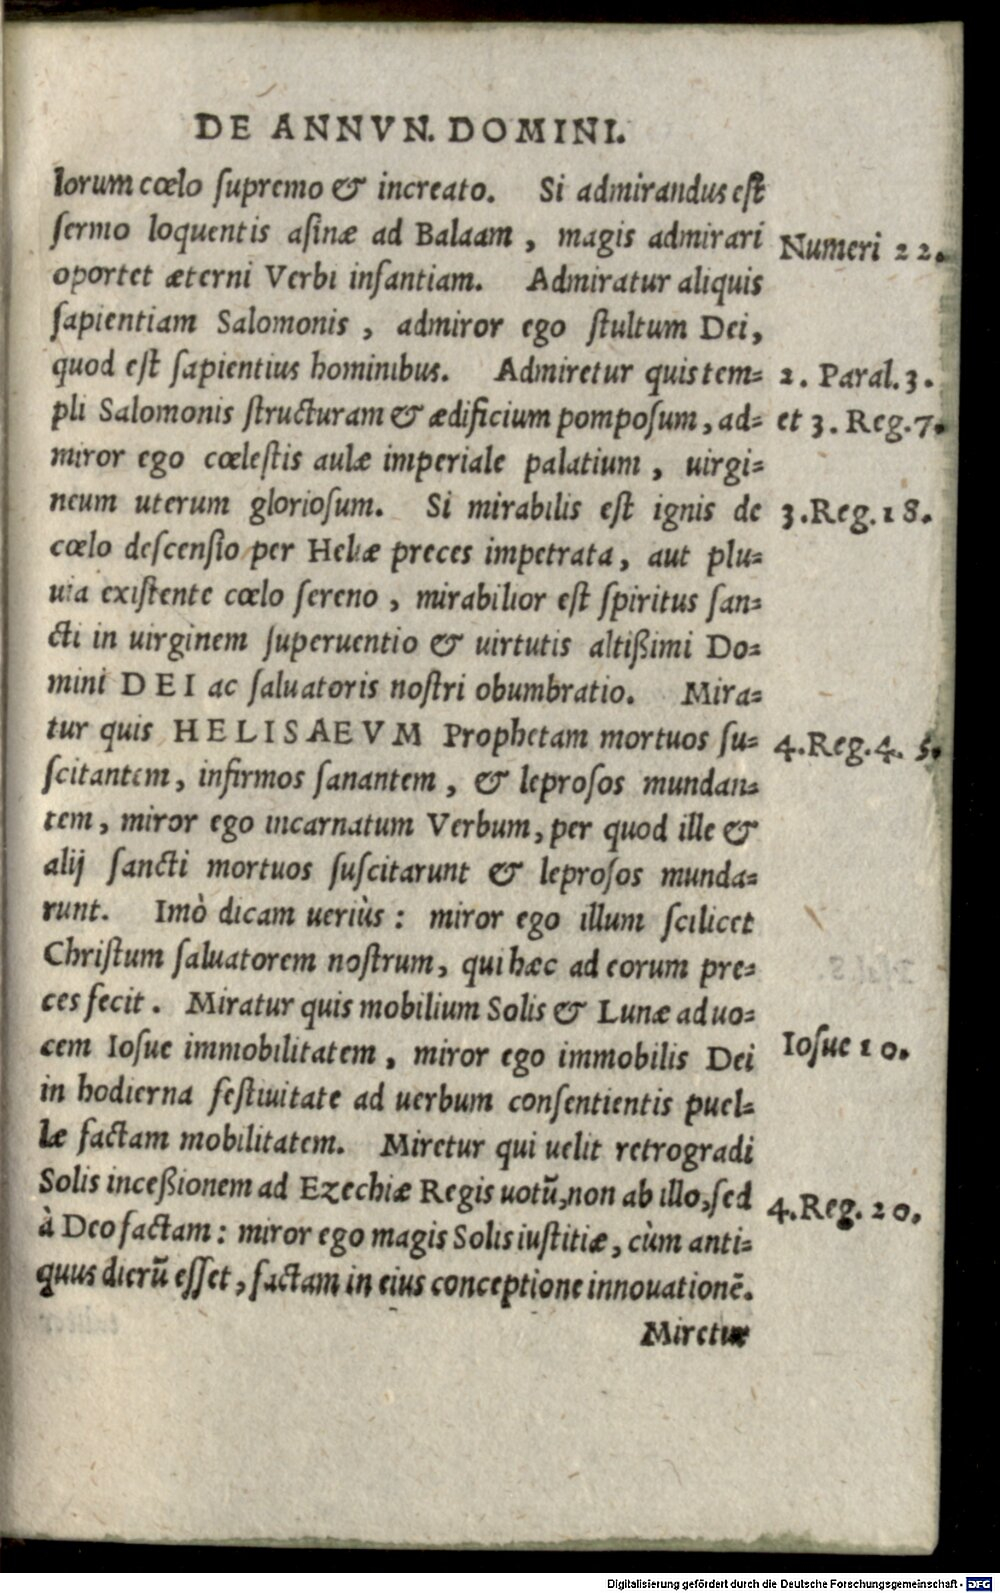 DE ANNVN. DOMINI.
lorum cœlo ſupremo & increato. Si admirandus eſt
ſermo loquentis aſinæ ad Balaam, magis admirari
Numeri 22.
oportet æterni Verbi infantiam. Admiratur aliquis
ſapientiam Salomonis, admiror ego ſtultum Dei,
quod eſt ſapientius hominibus. Admiretur quis tem=
2. Paral. 3.
pli Salomonis ſtructuram & ædificium pompoſum, ad=
et 3. Reg. 7.
miror ego cœleſtis aulæ imperiale palatium, uirgi=
neum uterum glorioſum. Si mirabilis eſt ignis de
3. Reg. 18.
cœlo deſcenſio per Heliæ preces impetrata, aut plu=
uia exiſtente cœlo ſereno, mirabilior eſt ſpiritus ſan=
cti in uirginem ſuperuentio & uirtutis altißimi Do=
mini DEI ac ſaluatoris noſtri obumbratio. Mira=
tur quis HELISAEVM Prophetam mortuos ſu=
4. Reg. 4. 5.
ſcitantem, infirmos ſanantem, & leproſos mundan=
tem, miror ego incarnatum Verbum, per quod ille &
alij ſancti mortuos ſuſcitarunt & leproſos munda=
runt. Imò dicam ueriùs: miror ego illum ſcilicet
Chriſtum ſaluatorem noſtrum, qui hæc ad eorum pre=
ces fecit. Miratur quis mobilium Solis & Lunæ ad uo=
cem Ioſue immobilitatem, miror ego immobilis Dei
Ioſue 10.
in hodierna feſtiuitate ad uerbum conſentientis puel=
læ factam mobilitatem. Miretur qui uelit retrogradi
Solis inceßionem ad Ezechiæ Regis uotũ, non ab illo, ſed
4. Reg. 20.
à Deo factam: miror ego magis Solis iuſtitiæ, cùm anti=
quus dierũ eſſet, factam in eius conceptione innouationẽ.
Miretur
Digitalisierung gefördert durch die Deutsche Forschungsgemeinschaft - DFG